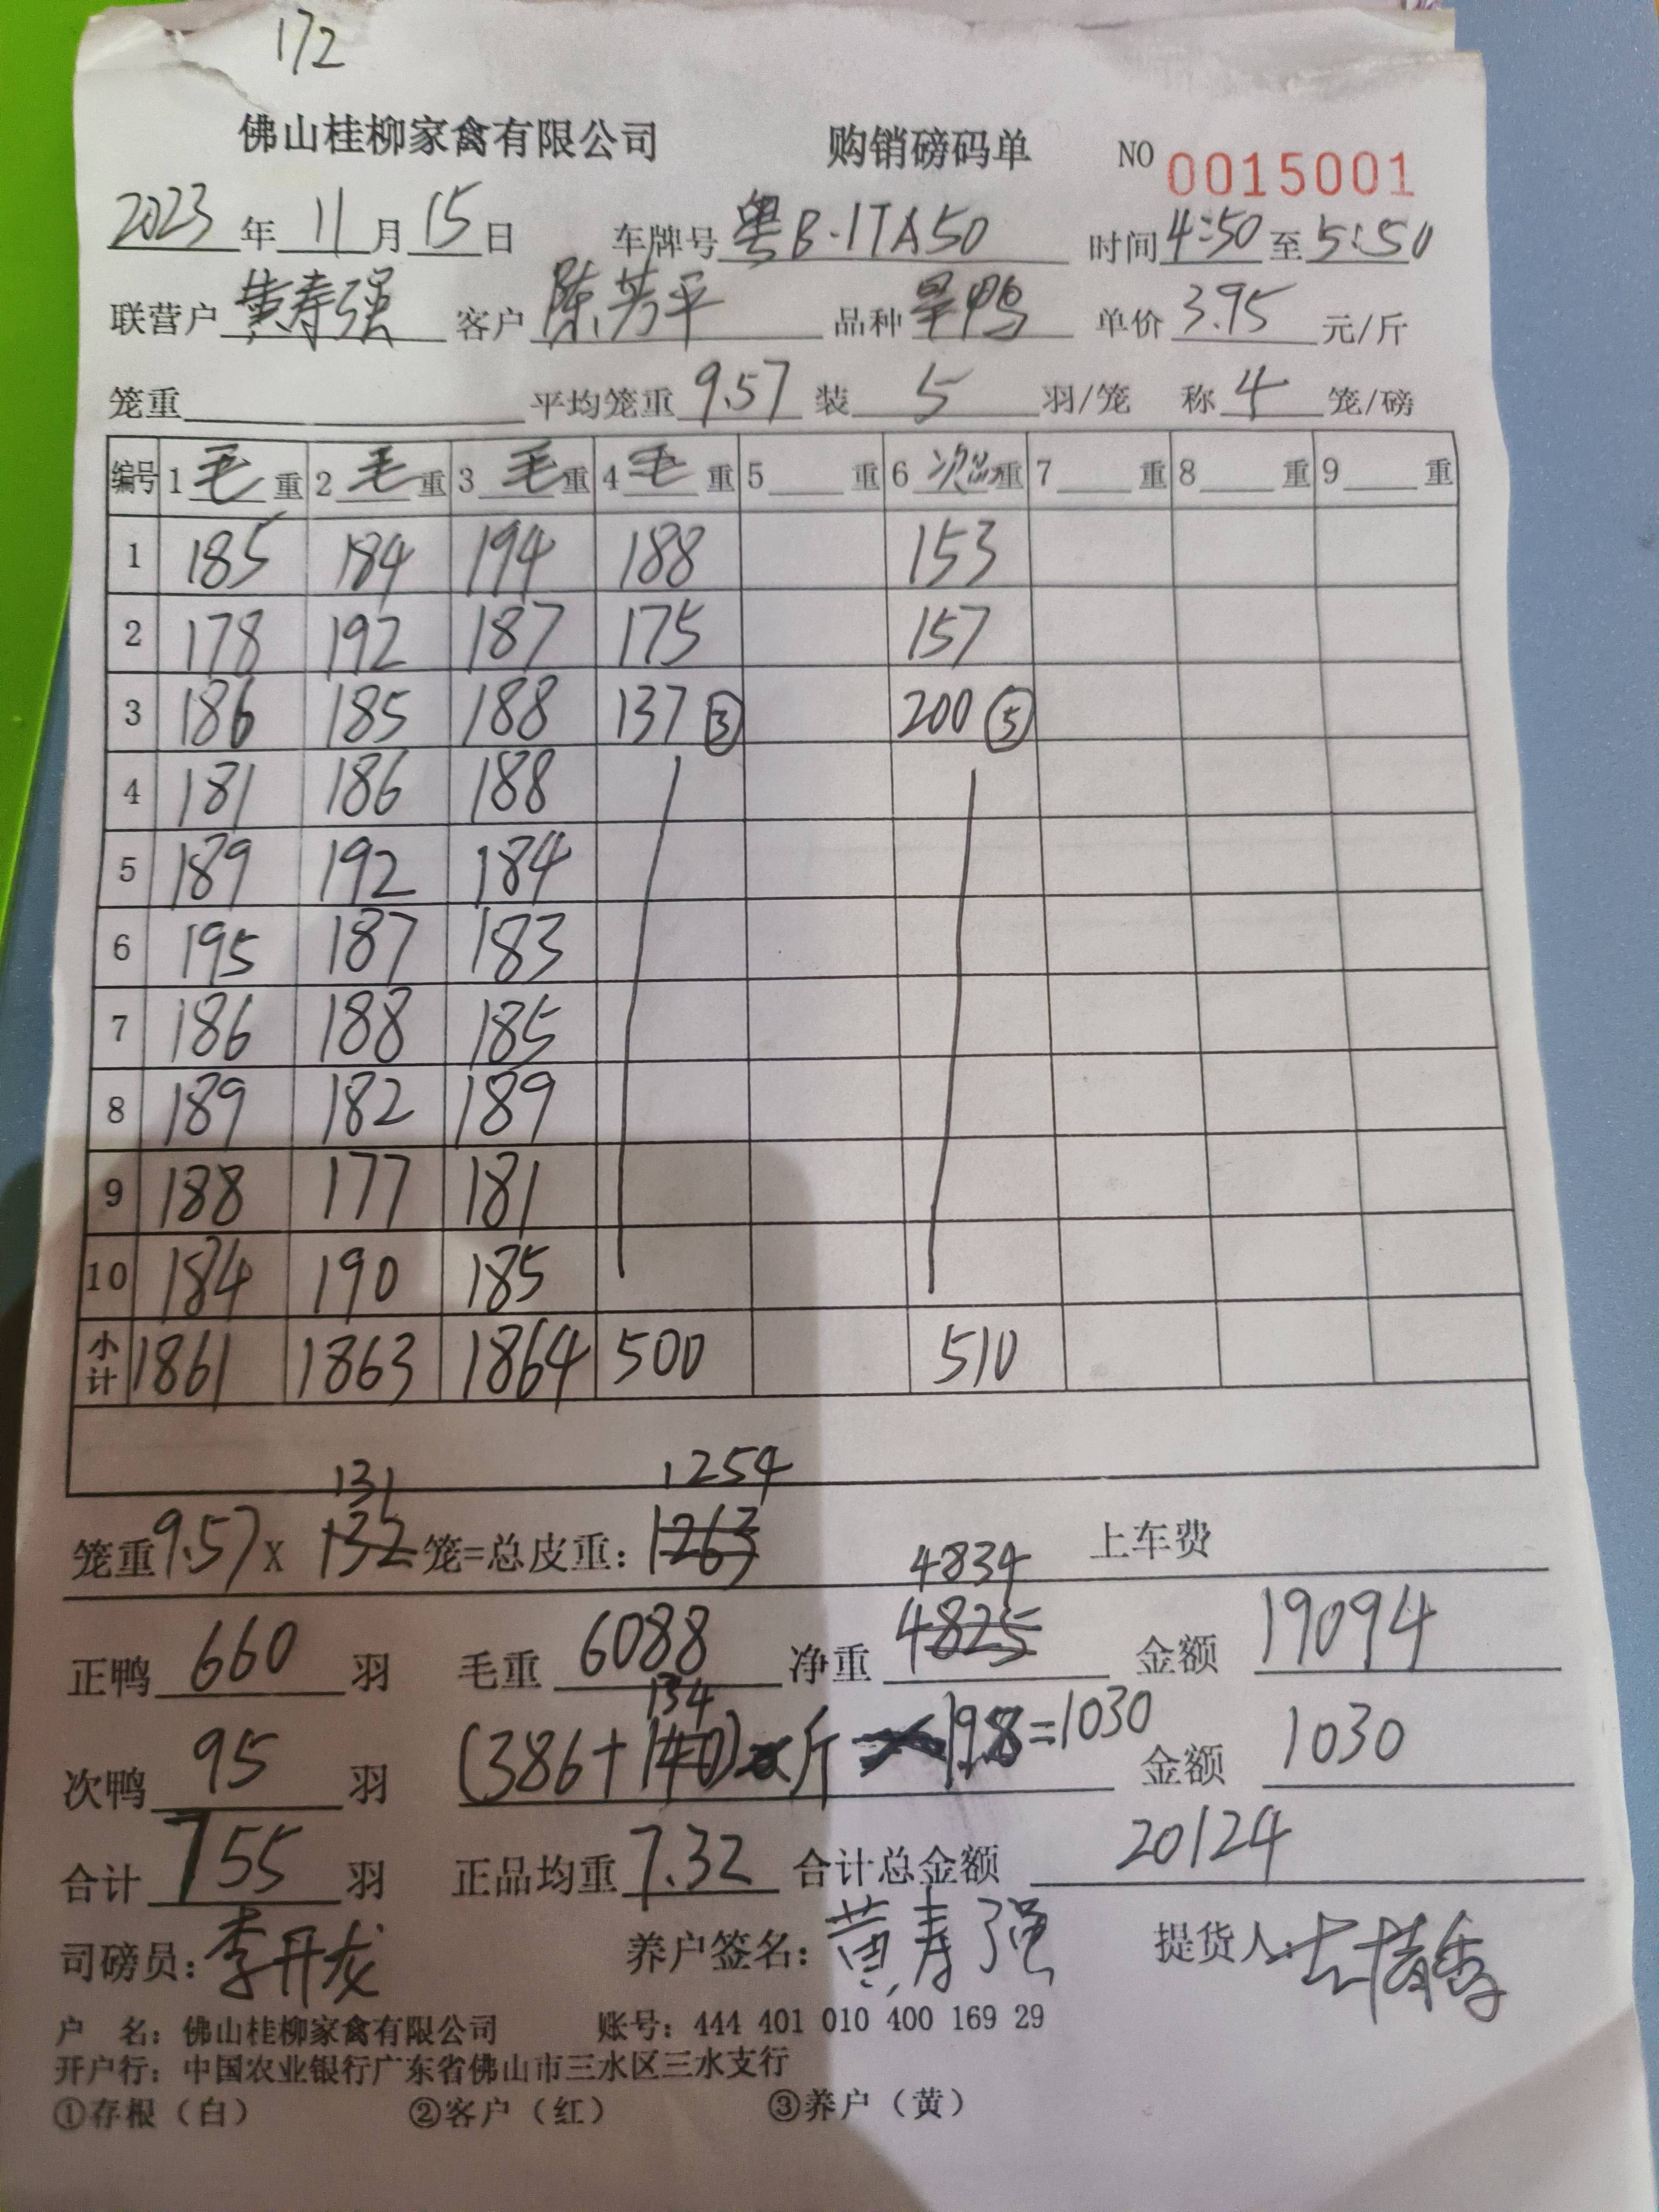 172
佛山桂柳家禽有限公司 购销磅码单 NO 0015001
2023年11月15日 车牌号粤B·1TA50 时间4:50至5:50
联营户黄寿强 客户陈芳平 品种旱鸭 单价3.95元/斤
笼重 平均笼重9.57 装5羽/笼 称4笼/磅
编号 1毛重 2毛重 3毛重 4毛重 5 重 6次品重 7 重 8 重 9 重
1 185 184 194 188 153
2 178 192 187 175 157
3 186 185 188 137③ 200⑤
4 181 186 188
5 189 192 184
6 195 187 183
7 186 188 185
8 189 182 189
9 188 177 181
10 184 190 185
小计 1861 1863 1864 500 510
131 1254
笼重9.57X 132笼=总皮重：1263 上车费
4834
正鸭660羽 毛重6088 净重4825 金额19094
134
次鸭95羽 (386+140)斤 =1030 金额1030
合计755羽 正品均重7.32 合计总金额20124
司磅员：李开龙 养户签名：黄寿强 提货人：
户 名：佛山桂柳家禽有限公司 账号：444 401 010 400 169 29
开户行：中国农业银行广东省佛山市三水区三水支行
①存根（白） ②客户（红） ③养户（黄）